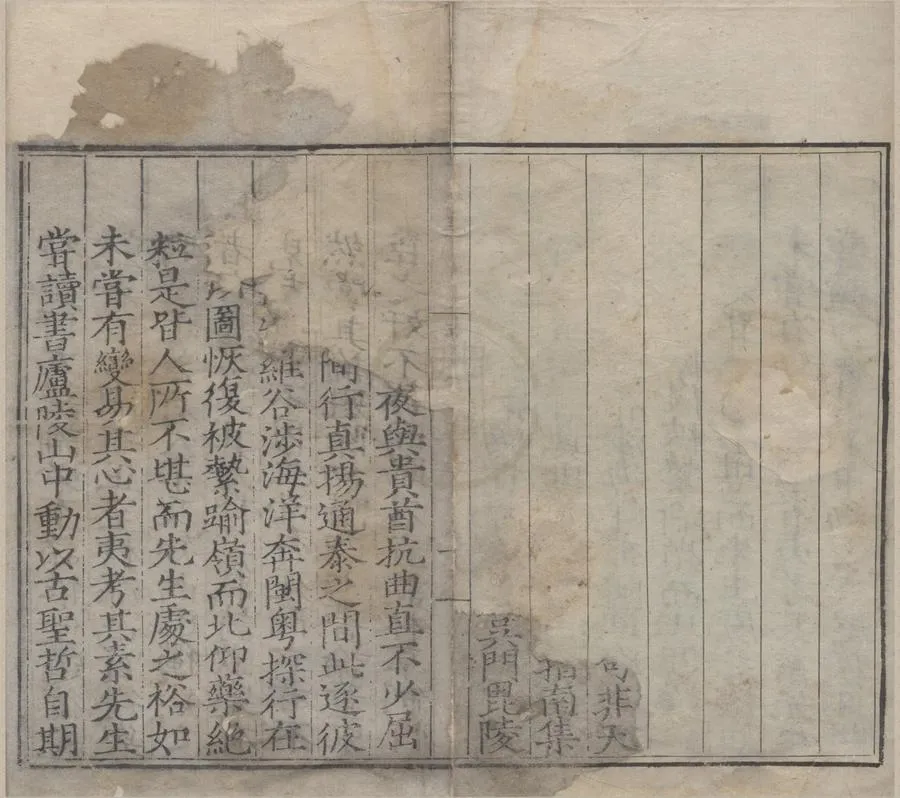 句非天
指南集
吳門毘陵
不夜與貴酋抗曲直不少屈
間行真揚通泰之間此逐彼
維谷涉海洋奔閩粤探行在
圖恢復被縶踰嶺而北仰藥絶
粒是皆人所不堪而先生處之裕如
未嘗有變易其心者夷考其素先生
嘗讀書廬陵山中動以古聖哲自期